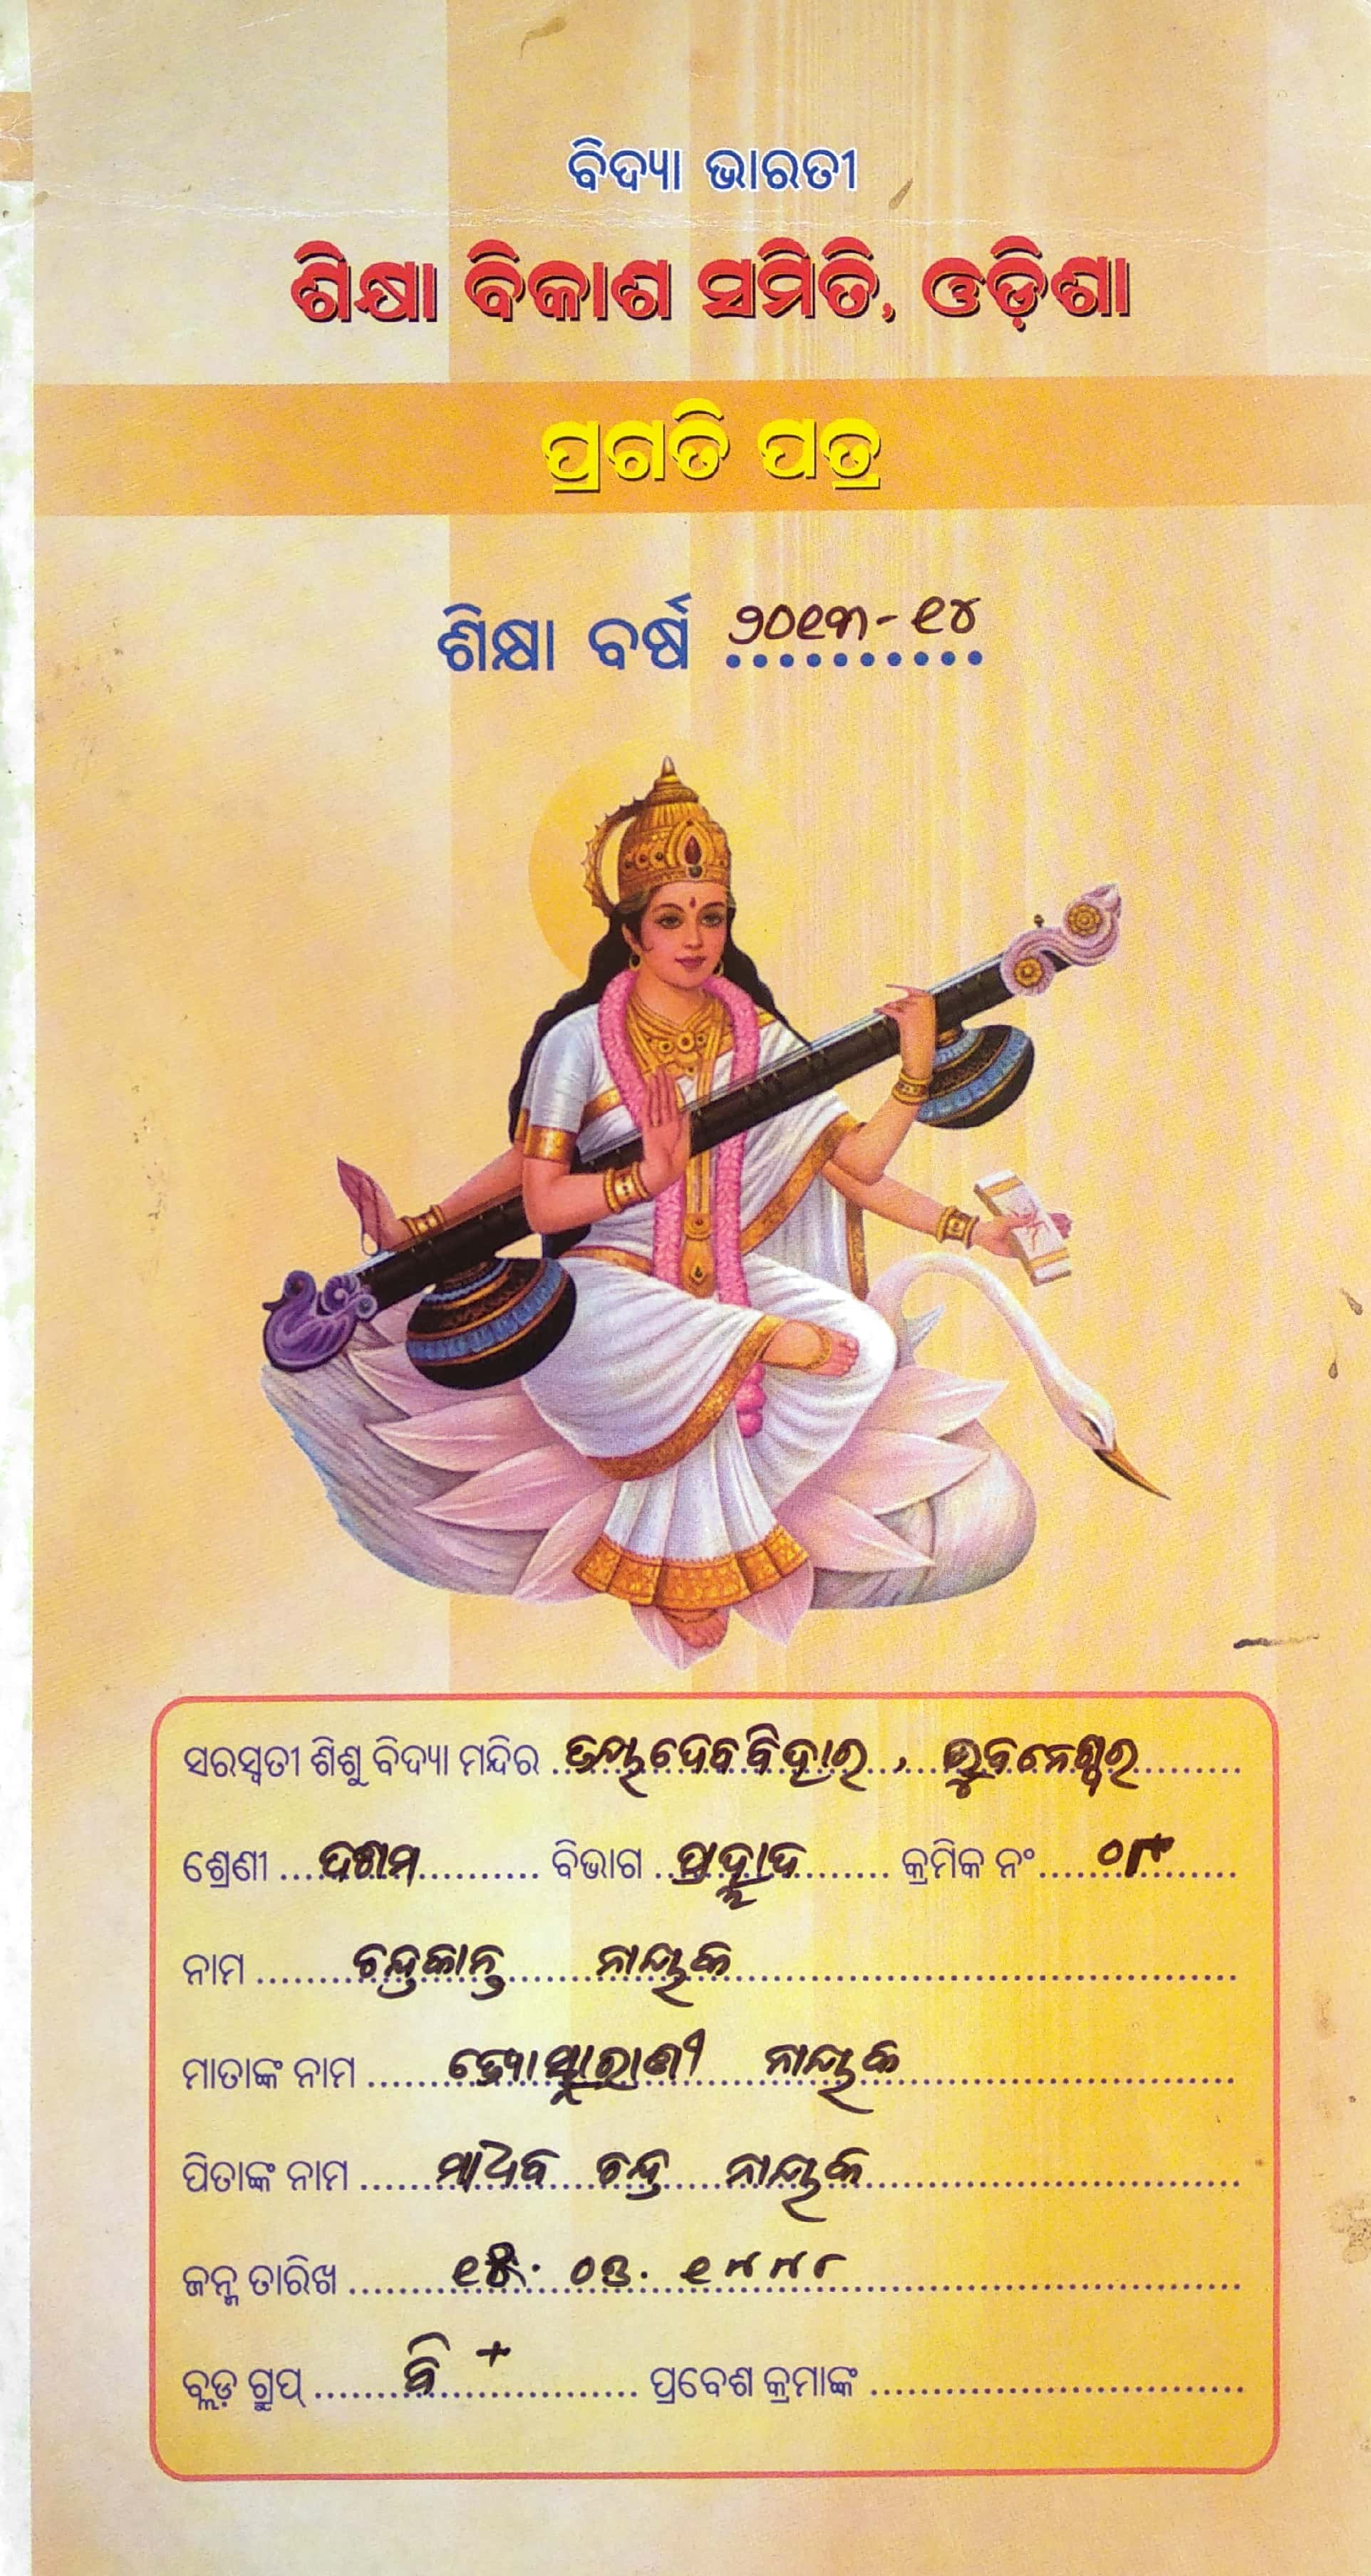 ବିଦ୍ୟା ଭାରତୀ
ଶିକ୍ଷା ବିକାଶ ସମିତି, ଓଡ଼ିଶା
ପ୍ରଗତି ପତ୍ର
ଶିକ୍ଷା ବର୍ଷ ୨୦୧୩-୧୪
ସରସ୍ୱତୀ ଶିଶୁ ବିଦ୍ୟା ମନ୍ଦିର ଜୟଦେବବିହାର, ଭୁବନେଶ୍ୱର
ଶ୍ରେଣୀ ଦଶମ ବିଭାଗ ପ୍ରହ୍ଲାଦ କ୍ରମିକ ନଂ
ନାମ ଚନ୍ଦ୍ରକାନ୍ତ ନାୟକ
ମାତାଙ୍କ ନାମ ନାୟକ
ପିତାଙ୍କ ନାମ ମାଧବ ଚନ୍ଦ୍ର ନାୟକ
ଜନ୍ମ ତାରିଖ
ବ୍ଲଡ଼ ଗ୍ରୁପ୍ ବି + ପ୍ରବେଶ କ୍ରମାଙ୍କ